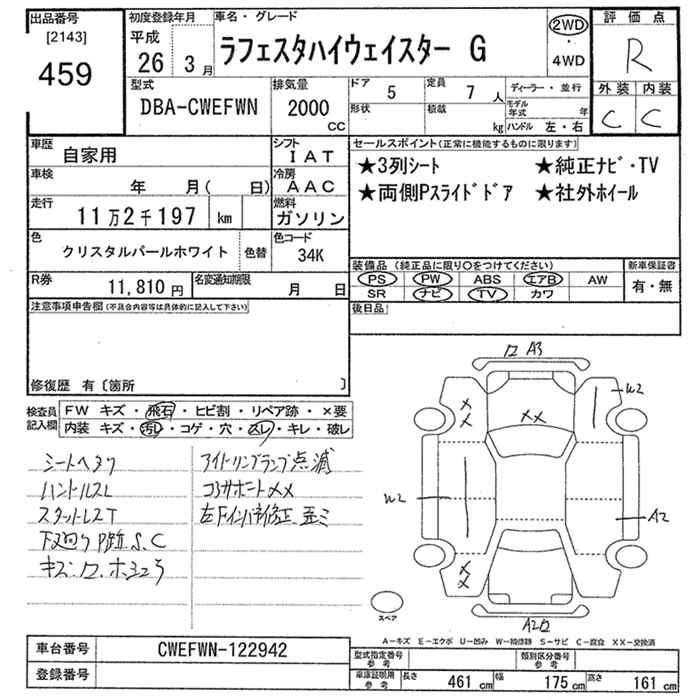 出品番号
[2143]
459
初度登録年月
平成
26 年 3 月
車名・グレード
ラフェスタハイウェイスター G
2WD
・
4WD
評価点
R
外装 内装
C C
型式
DBA-CWEFWN
排気量
2000
CC
ドア 5
定員 7 人
形状
積載 kg
ディーラー・並行
モデル年式 年
ハンドル 左・右
車歴 自家用
シフト IAT
車検 年 月( 日)
冷房 AAC
走行 11万2千197 km
燃料 ガソリン
色 クリスタルパールホワイト
色替
色コード 34K
R券 11,810 円
名変通知期限 月 日
セールスポイント(正常に機能するものに限ります)
★3列シート ★純正ナビ・TV
★両側Pスライドドア ★社外ホイール
装備品(純正品に限り○をつけてください)
新車保証書
PS PW ABS エアB AW
SR ナビ TV カワ
有・無
後日品
注意事項申告欄(不具合内容等は具体的に記入して下さい)
修復歴 有〔箇所 〕
検査員記入欄
FW キズ・飛石・ヒビ割・リペア跡・×要
内装 キズ・汚レ・コゲ・穴・スレ・キレ・破レ
シートヘタリ
ハンドルスレ
スタットレスT
下廻りP跡、S、C
アイドリングランプ点滅
コアサポートXX
左Fインパネ修正 歪ミ
A3
W2
XX
XX
W2
A2
XX
A2
スペア
A-キズ E-エクボ U-凹み W-補修跡 S-サビ C-腐食 XX-交換済
車台番号 CWEFWN-122942
登録番号
型式指定番号 参考
類別区分番号 参考
車庫証明用 参考
長さ 461 cm 幅 175 cm 高さ 161 cm